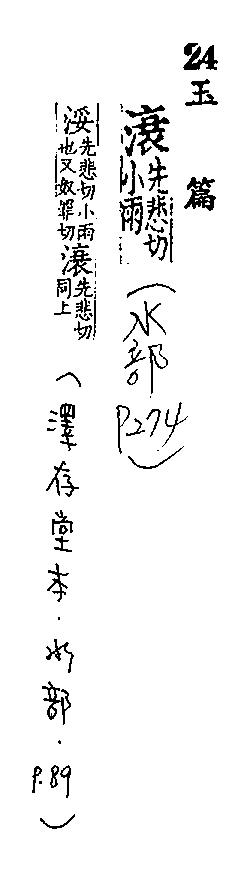 24 玉篇
滖先悲切小雨(水部 P274)
浽先悲切小雨也又奴罪切滖先悲切同上(澤存堂本.水部.P.89)